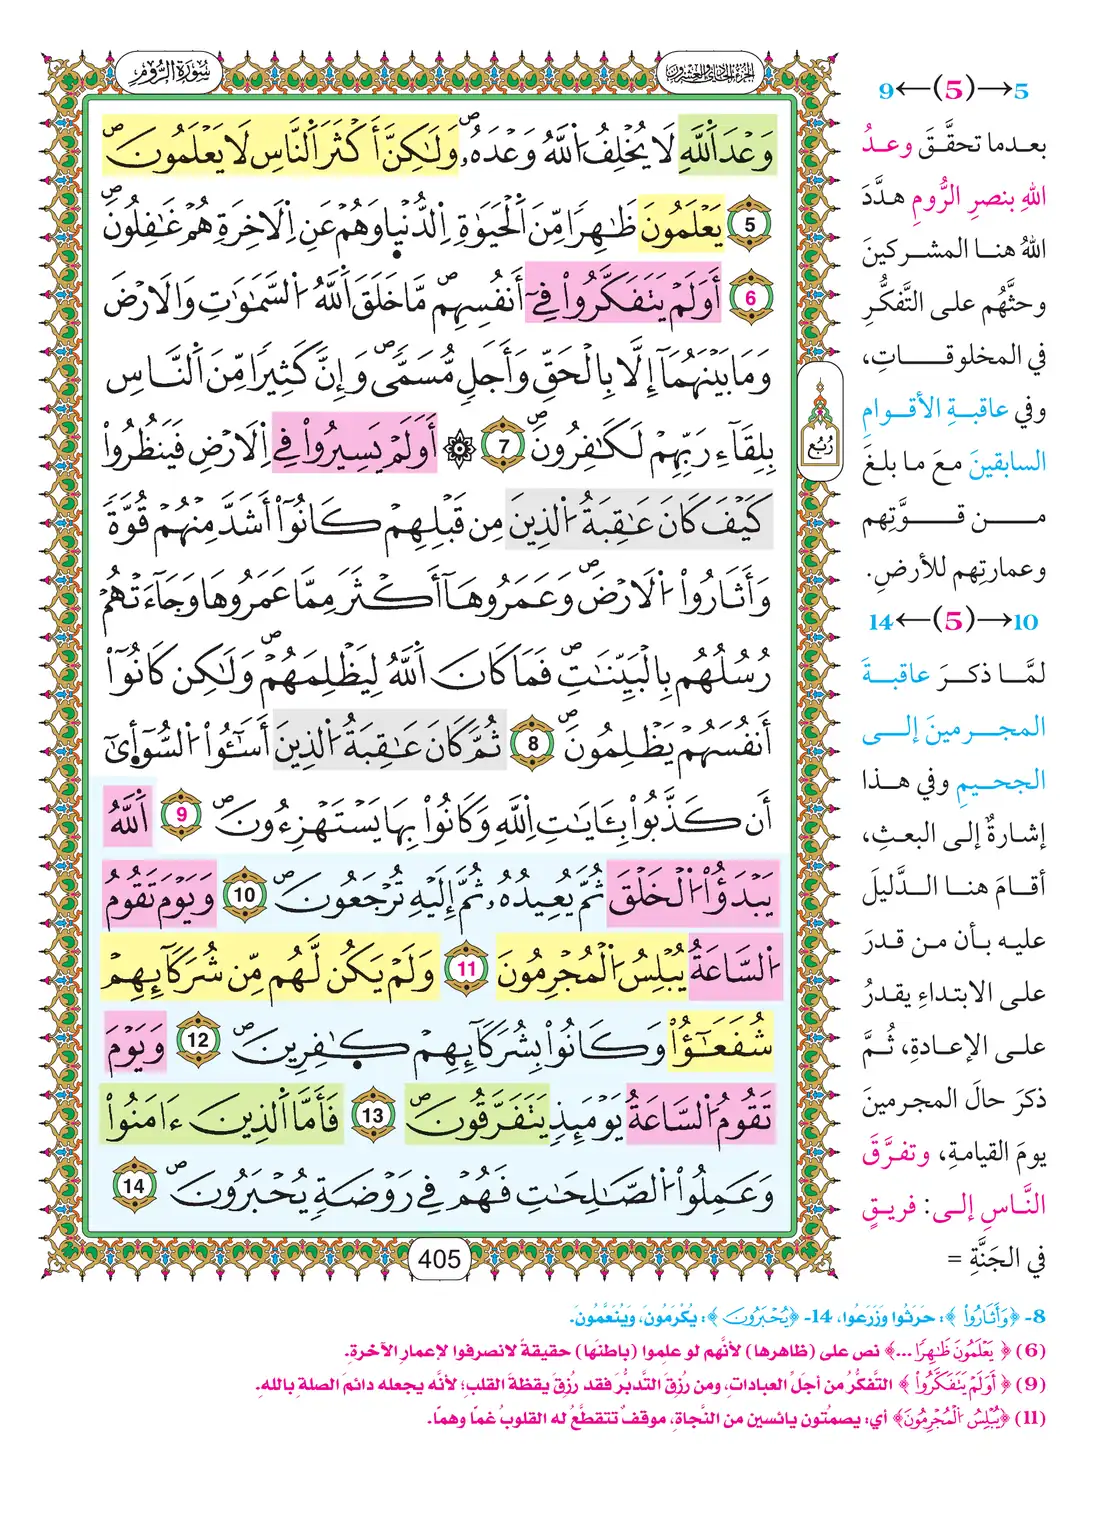 سُورَةُ الرُّومِ
الجزء الحادي والعشرون
وَعْدَ اَللَّهِ لَا يُخْلِفُ اُللَّهُ وَعْدَهُۥ وَلَٰكِنَّ أَكْثَرَ اَلنَّاسِ لَا يَعْلَمُونَۖ
5 يَعْلَمُونَ ظَٰهِرٗا مِّنَ اَلْحَيَوٰةِ اِلدُّنْيا وَهُمْ عَنِ اِلَاخِرَةِ هُمْ غَٰفِلُونَۖ
6 أَوَلَمْ يَتَفَكَّرُواْ فِےٓ أَنفُسِهِمۖ مَّا خَلَقَ اَللَّهُ اُلسَّمَٰوَٰتِ وَالَارْضَ
وَمَا بَيْنَهُمَآ إِلَّا بِالْحَقِّ وَأَجَلٖ مُّسَمّٗيۖ وَإِنَّ كَثِيرٗا مِّنَ اَلنَّاسِ
بِلِقَآءِ رَبِّهِمْ لَكَٰفِرُونَۖ 7 ۞ أَوَلَمْ يَسِيرُواْ فِے اِلَارْضِ فَيَنظُرُواْ
كَيْفَ كَانَ عَٰقِبَةُ اُلذِينَ مِن قَبْلِهِمْ كَانُوٓاْ أَشَدَّ مِنْهُمْ قُوَّةٗ
وَأَثَارُواْ اُلَارْضَۖ وَعَمَرُوهَآ أَكْثَرَ مِمَّا عَمَرُوهَا وَجَآءَتْهُمْ
رُسُلُهُم بِالْبَيِّنَٰتِۖ فَمَا كَانَ اَللَّهُ لِيَظْلِمَهُمْۖ وَلَٰكِن كَانُوٓاْ
أَنفُسَهُمْ يَظْلِمُونَۖ 8 ثُمَّ كَانَ عَٰقِبَةُ اُلذِينَ أَسَٰٓـُٔواْ اُلسُّوٓأ۪يٰٓ
أَن كَذَّبُواْ بِـَٔايَٰتِ اِللَّهِ وَكَانُواْ بِهَا يَسْتَهْزِءُونَۖ 9 اَللَّهُ
يَبْدَؤُاْ اُلْخَلْقَ ثُمَّ يُعِيدُهُۥ ثُمَّ إِلَيْهِ تُرْجَعُونَۖ 10 وَيَوْمَ تَقُومُ
اُلسَّاعَةُ يُبْلِسُ اُلْمُجْرِمُونَ 11 وَلَمْ يَكُن لَّهُم مِّن شُرَكَآئِهِمْ
شُفَعَٰٓؤُاْ وَكَانُواْ بِشُرَكَآئِهِمْ كٰ۪فِرِينَۖ 12 وَيَوْمَ
تَقُومُ اُلسَّاعَةُ يَوْمَئِذٖ يَتَفَرَّقُونَۖ 13 فَأَمَّا اَلذِينَ ءَامَنُواْ
وَعَمِلُواْ اُلصَّٰلِحَٰتِ فَهُمْ فِے رَوْضَةٖ يُحْبَرُونَۖ 14
رُبُع
405
5→(5)←9
بعدما تحقَّقَ وعدُ
اللهِ بنصرِ الرُّومِ هدَّدَ
اللهُ هنا المشركينَ
وحثَّهُم على التَّفكُّرِ
في المخلوقاتِ،
وفي عاقبةِ الأقوامِ
السابقينَ معَ ما بلغَ
من قوَّتِهم
وعمارتِهم للأرضِ.
10→(5)←14
لمَّا ذكرَ عاقبةَ
المجرمينَ إلى
الجحيمِ وفي هذا
إشارةٌ إلى البعثِ،
أقامَ هنا الدَّليلَ
عليه بأن من قدرَ
على الابتداءِ يقدرُ
على الإعادةِ، ثُمَّ
ذكرَ حالَ المجرمينَ
يومَ القيامةِ، وتفرَّقَ
النَّاسِ إلى: فريقٍ
في الجَنَّةِ =
8- ﴿وَأَثَارُواْ﴾: حَرَثُوا وَزَرَعُوا، 14- ﴿يُحْبَرُونَ﴾: يُكْرَمُونَ، وَيُنَعَّمُونَ.
(6) ﴿يَعْلَمُونَ ظَٰهِرٗا ...﴾ نص على (ظاهرها) لأنَّهم لو علِموا (باطنَها) حقيقةً لانصرفوا لإعمارِ الآخرةِ.
(9) ﴿أَوَلَمْ يَتَفَكَّرُواْ﴾ التَّفكُّرُ من أجَلِّ العباداتِ، ومن رُزِقَ التَّدبُّرَ فقد رُزِقَ يقظةَ القلبِ؛ لأنَّه يجعله دائمَ الصلةِ باللهِ.
(11) ﴿يُبْلِسُ اُلْمُجْرِمُونَ﴾ أي: يصمتُون يائسين من النَّجاةِ، موقفٌ تتقطَّعُ له القلوبُ غمّا وهمّا.